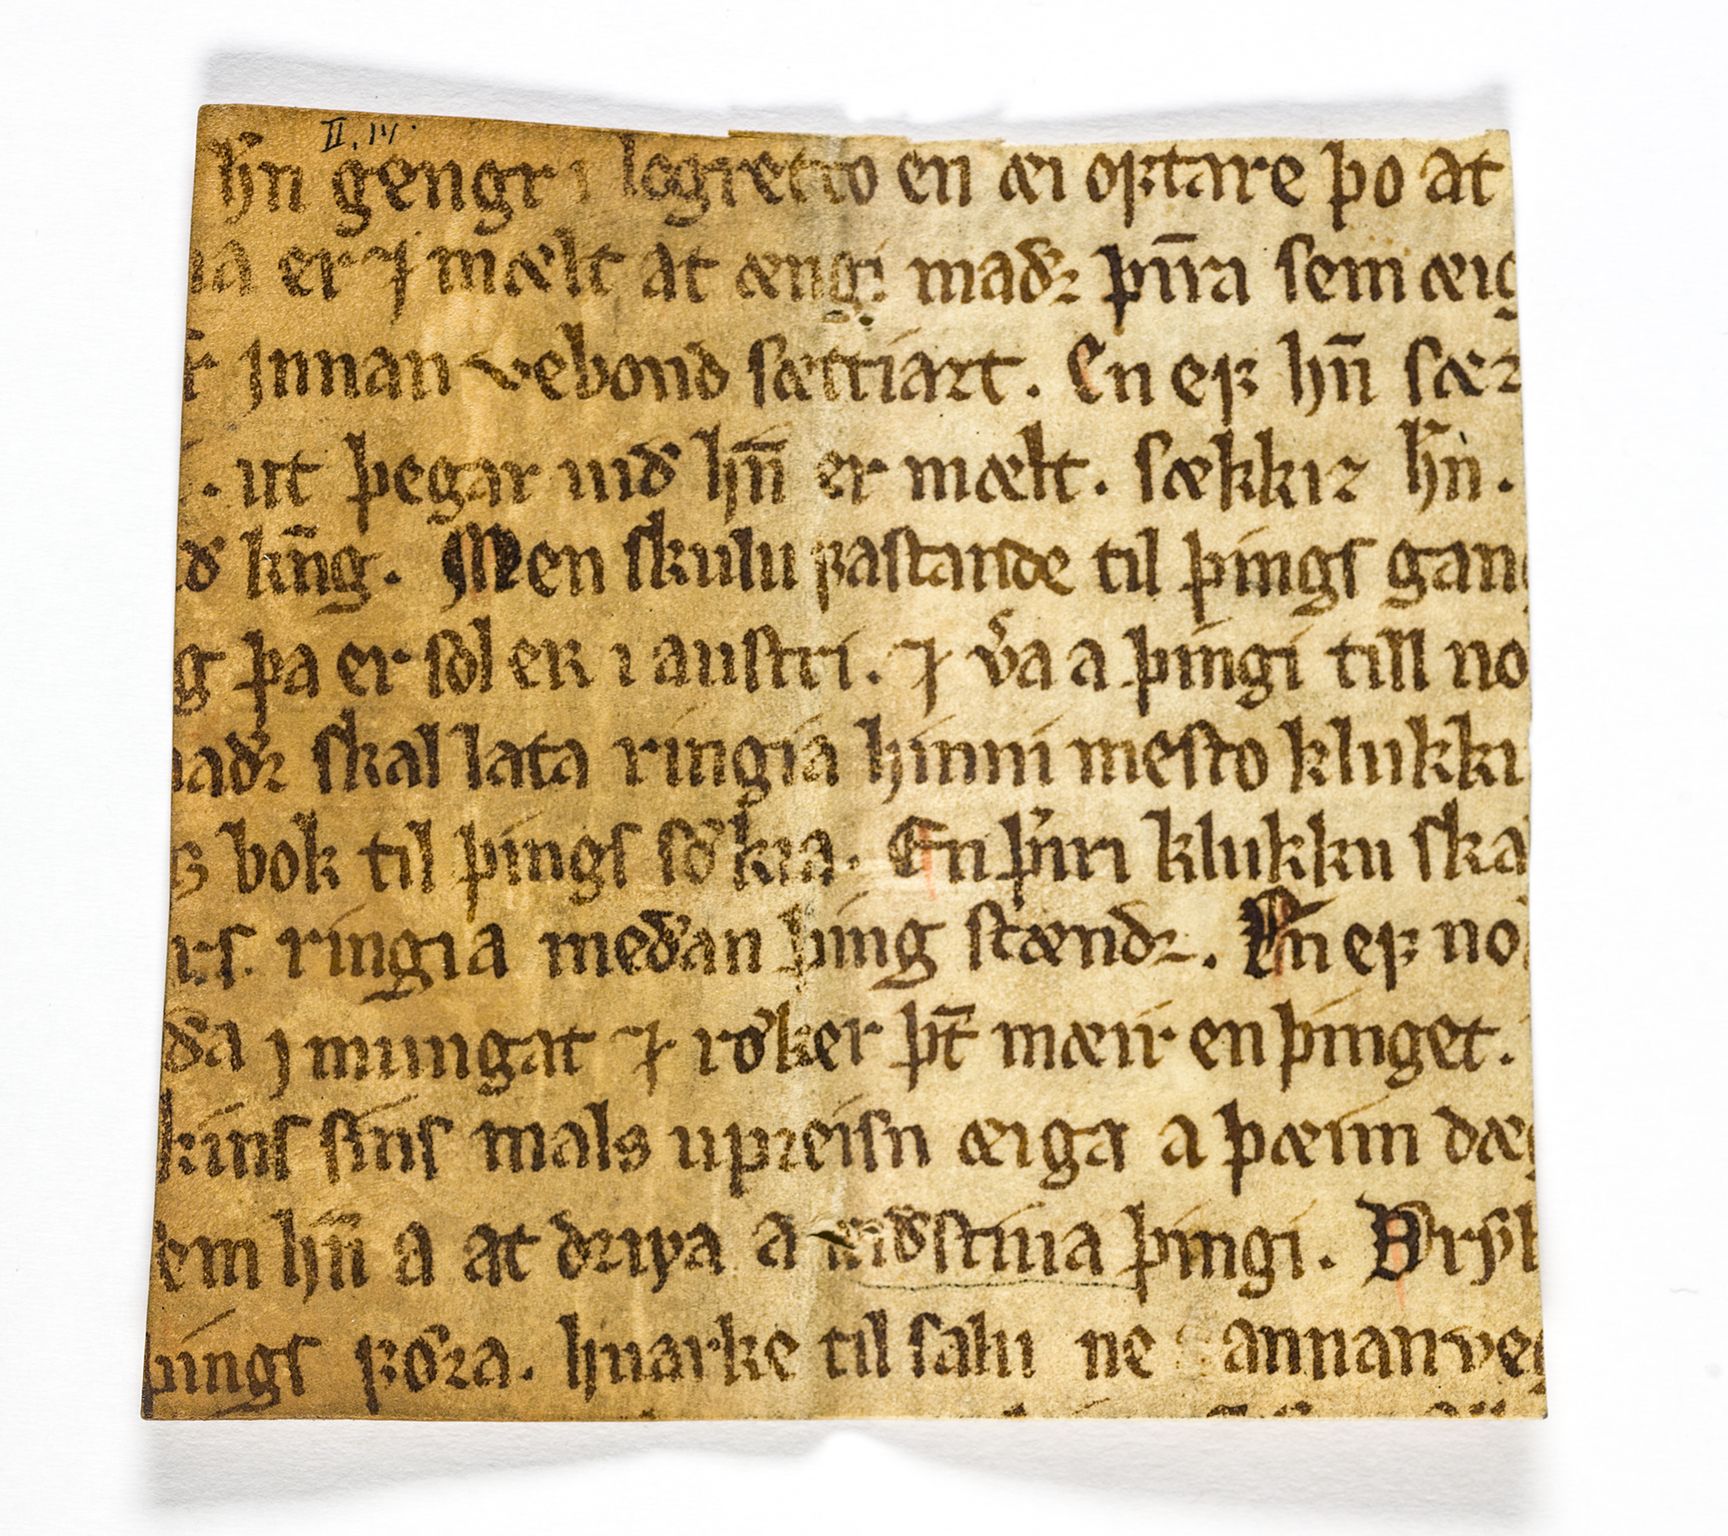 II. 14.
hn̄ gengr i legretto en æi oꝼtare þo at
na er ⁊ mælt at ængi maðꝛ þīra sem æig
t̄ ȷnnan vebond sættiazt. En eꝼ hn̄ sæꝛ
. ut þegar uið hn̄ er mælt. sækkiꝛ hn̄.
ð kn̄g. Men skulu ꝼastande til þings gang
g þa er sol er i austri. ⁊ v̓a a þingi till no
aðꝛ skal lata ringia hinni mesto klukku
s bok til þings sø̓kia. En þīri klukku ska
r.s. ringia meðan þing stændꝛ. En eꝼ no
ða ȷ mungat ⁊ rø̓ker þt̄ mæir en þinget.
kins sins mals upꝛeisn æiga a þæim dæg
em hn̄ a at dꝛiỿa a miðstiua þingi. Dryk
þings ꝼø̓ꝛa. huarke til salu ne annanveg